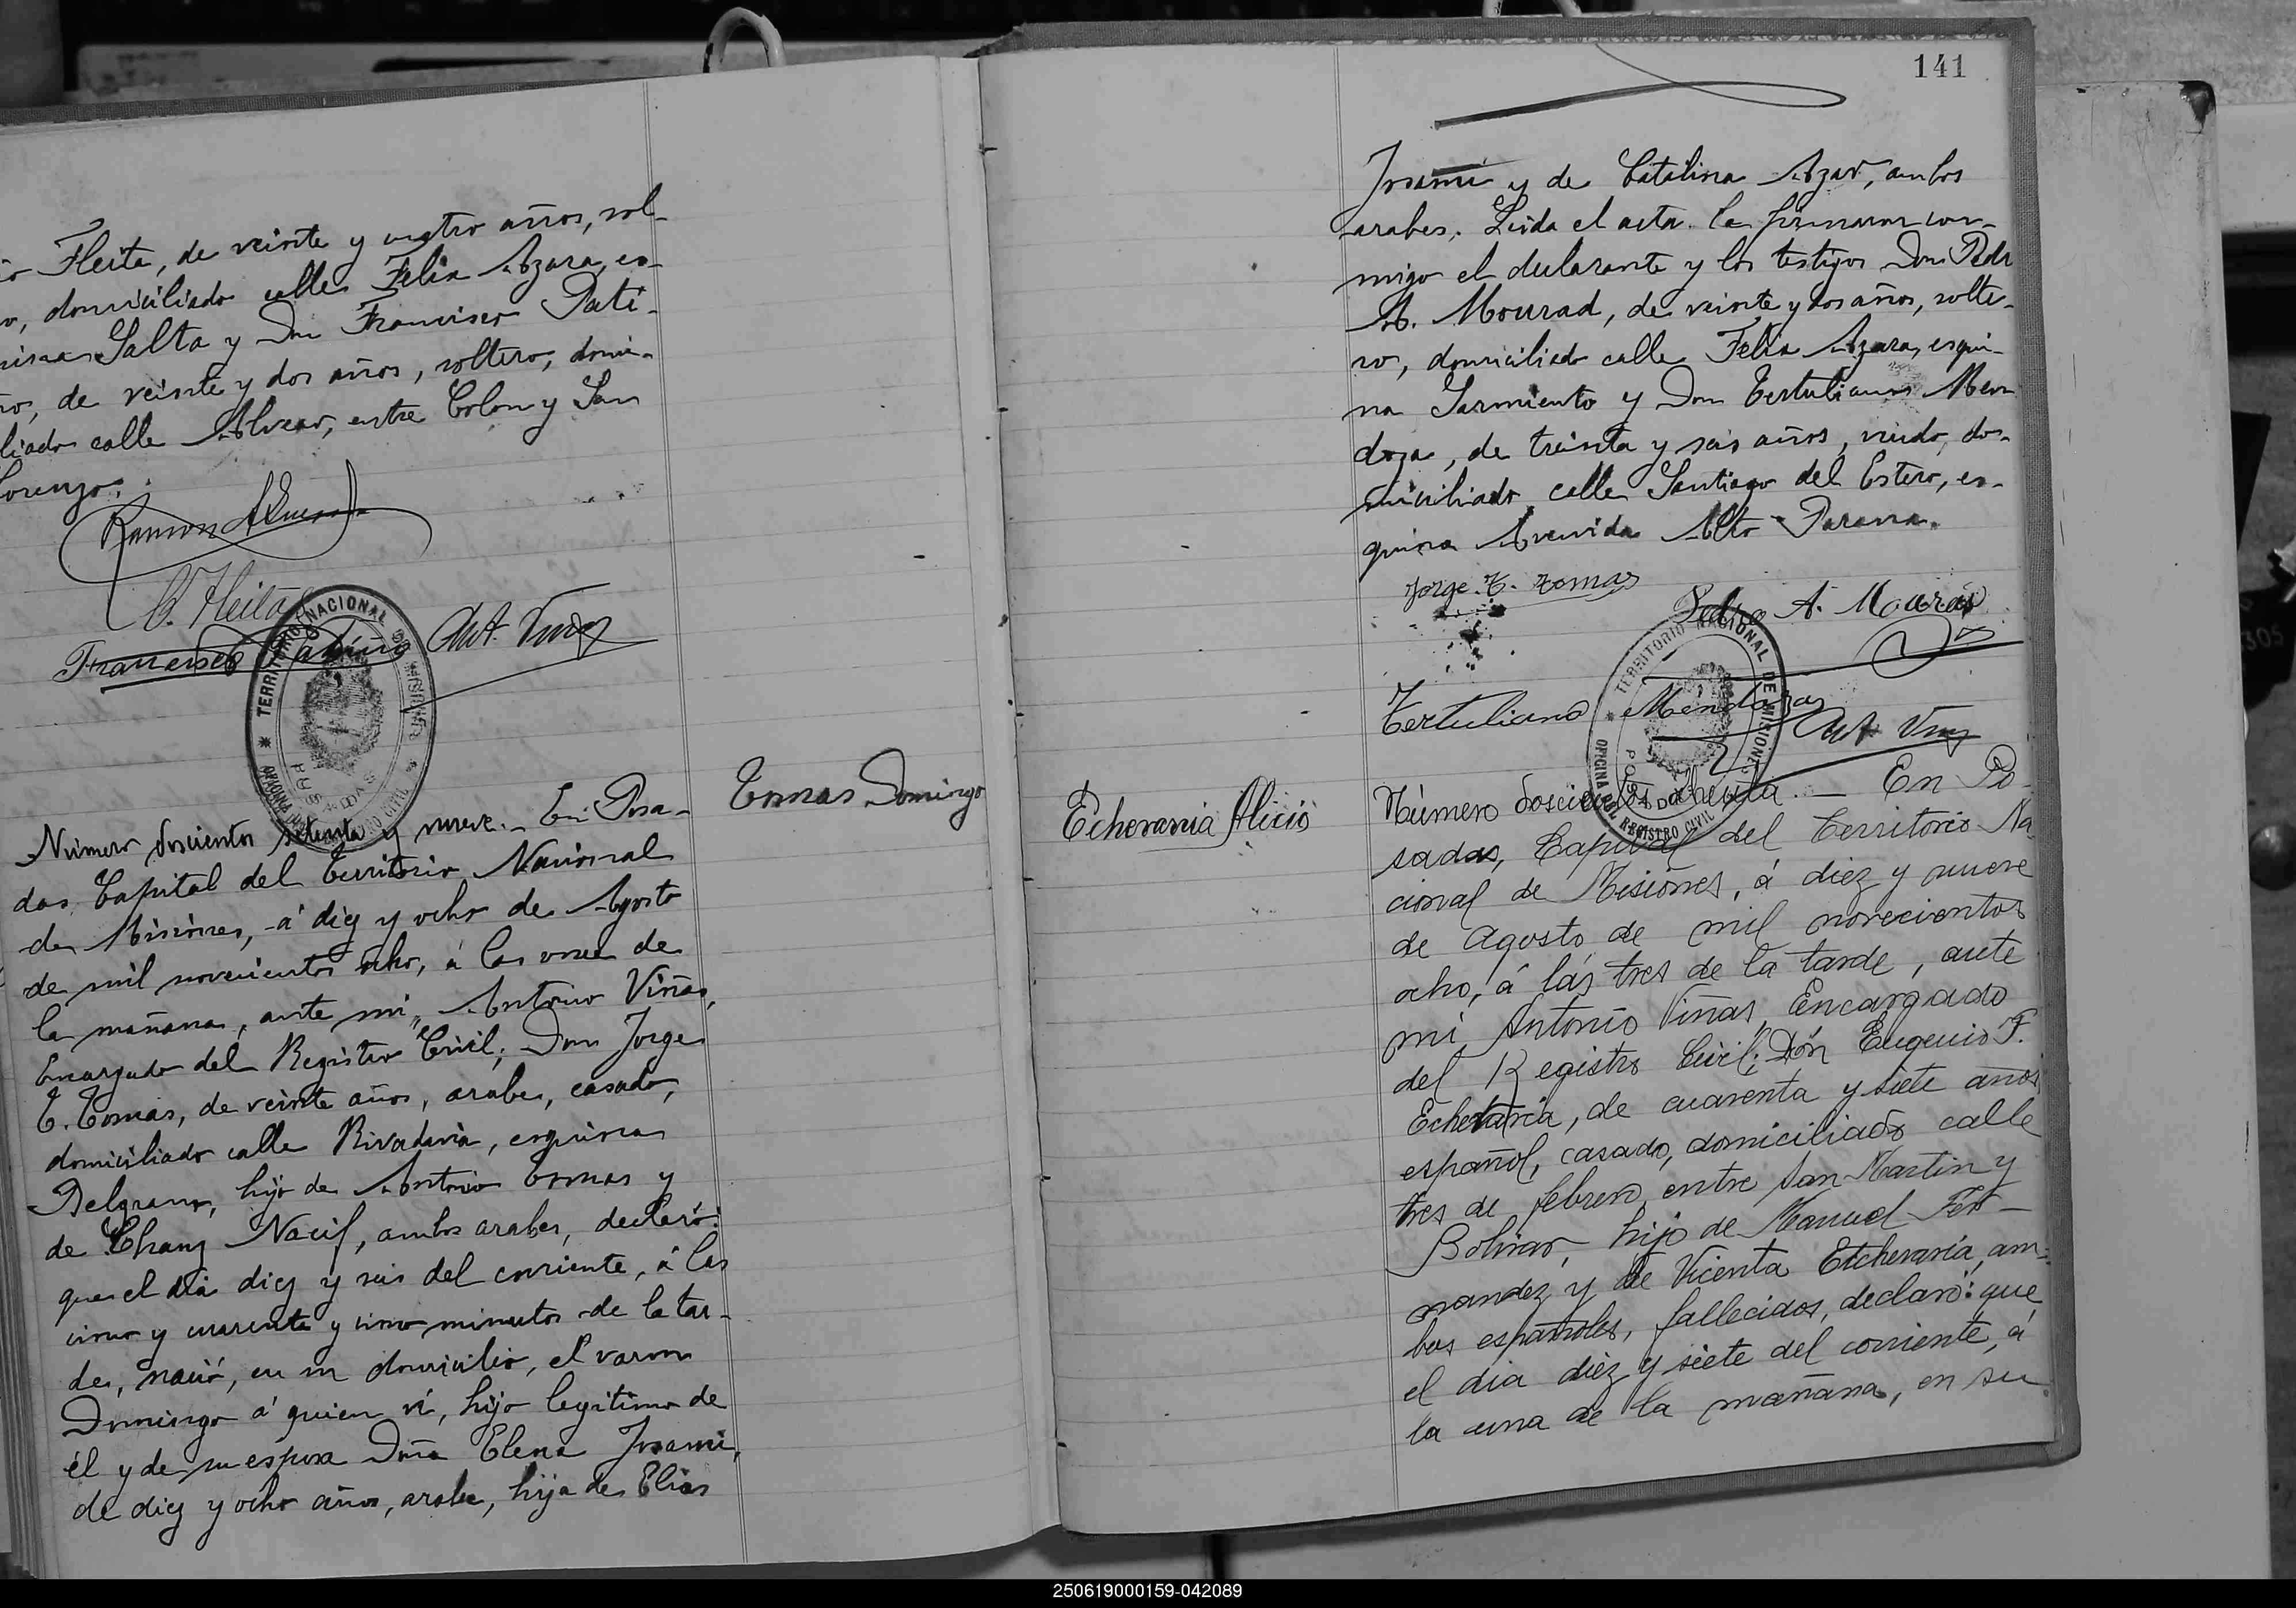 Fleita, de veinte y cuatro años, sol-
domiciliado calle Felix Azara, es-
Salta y Don Francisco Pati-
ño, de veinte y dos años, soltero, domi-
liado calle Alvear, entre Colon y San
Lorenzo.
Ramon
Francisco Patiño Ant. Viñas
TERRITORIO NACIONAL DE MISIONES
OFICINA DEL REGISTRO CIVIL
POSADAS
Tomas Domingo
Número doscientos setenta y nueve.- En Posa-
das, Capital del Territorio Nacional
de Misiones, á diez y ocho de Agosto
de mil novecientos ocho, á las once de
la mañana, ante mi, Antonio Viñas,
Encargado del Registro Civil; Don Jorge
T. Tomas, de veinte años, arabe, casado,
domiciliado calle Rivadavia, esquina
Belgrano, hijo de Antonio Tomas y
de Chang Nacif, ambos arabes, declaró:
que el dia diez y seis del corriente, á las
cinco y cuarenta y cinco minutos de la tar-
de, nació, en su domicilio, el varon
Domingo á quien ví, hijo legitimo de
él y de su esposa Doña Elena Insami,
de diez y ocho años, arabe, hija de Elias
141
Insami y de Catalina Azar, ambos
arabes. Leida el acta la firmaron con-
migo el declarante y los testigos Don Pedro
A. Mourad, de veinte y dos años, solte-
ro, domiciliado calle Felix Azara, esqui-
na Sarmiento y Don Tertuliano Men-
doza, de treinta y seis años, viudo, do-
miciliado calle Santiago del Estero, es-
quina Avenida Alto Parana.
Jorge. T. Tomas
Pedro A. Mourad
Tertuliano Mendoza
Ant Viñas
TERRITORIO NACIONAL DE MISIONES
OFICINA DEL REGISTRO CIVIL
POSADAS
Echevarria Alicio
Número doscientos ochenta.— En Po-
sadas, Capital del Territorio Na
cional de Misiones, á diez y nueve
de Agosto de mil novecientos
ocho, á las tres de la tarde, ante
mi, Antonio Viñas, Encargado
del Registro Civil; Dón Eugenio F.
Echevaria, de cuarenta y siete años
español, casado, domiciliado calle
tres de febrero, entre San Martin y
Bolivar, hijo de Manuel Fer-
nandez y de Vicenta Etchevaria, am-
bos españoles, fallecidos, declaró: que
el dia diez y siete del corriente, á
la una de la mañana, en su
250619000159-042089